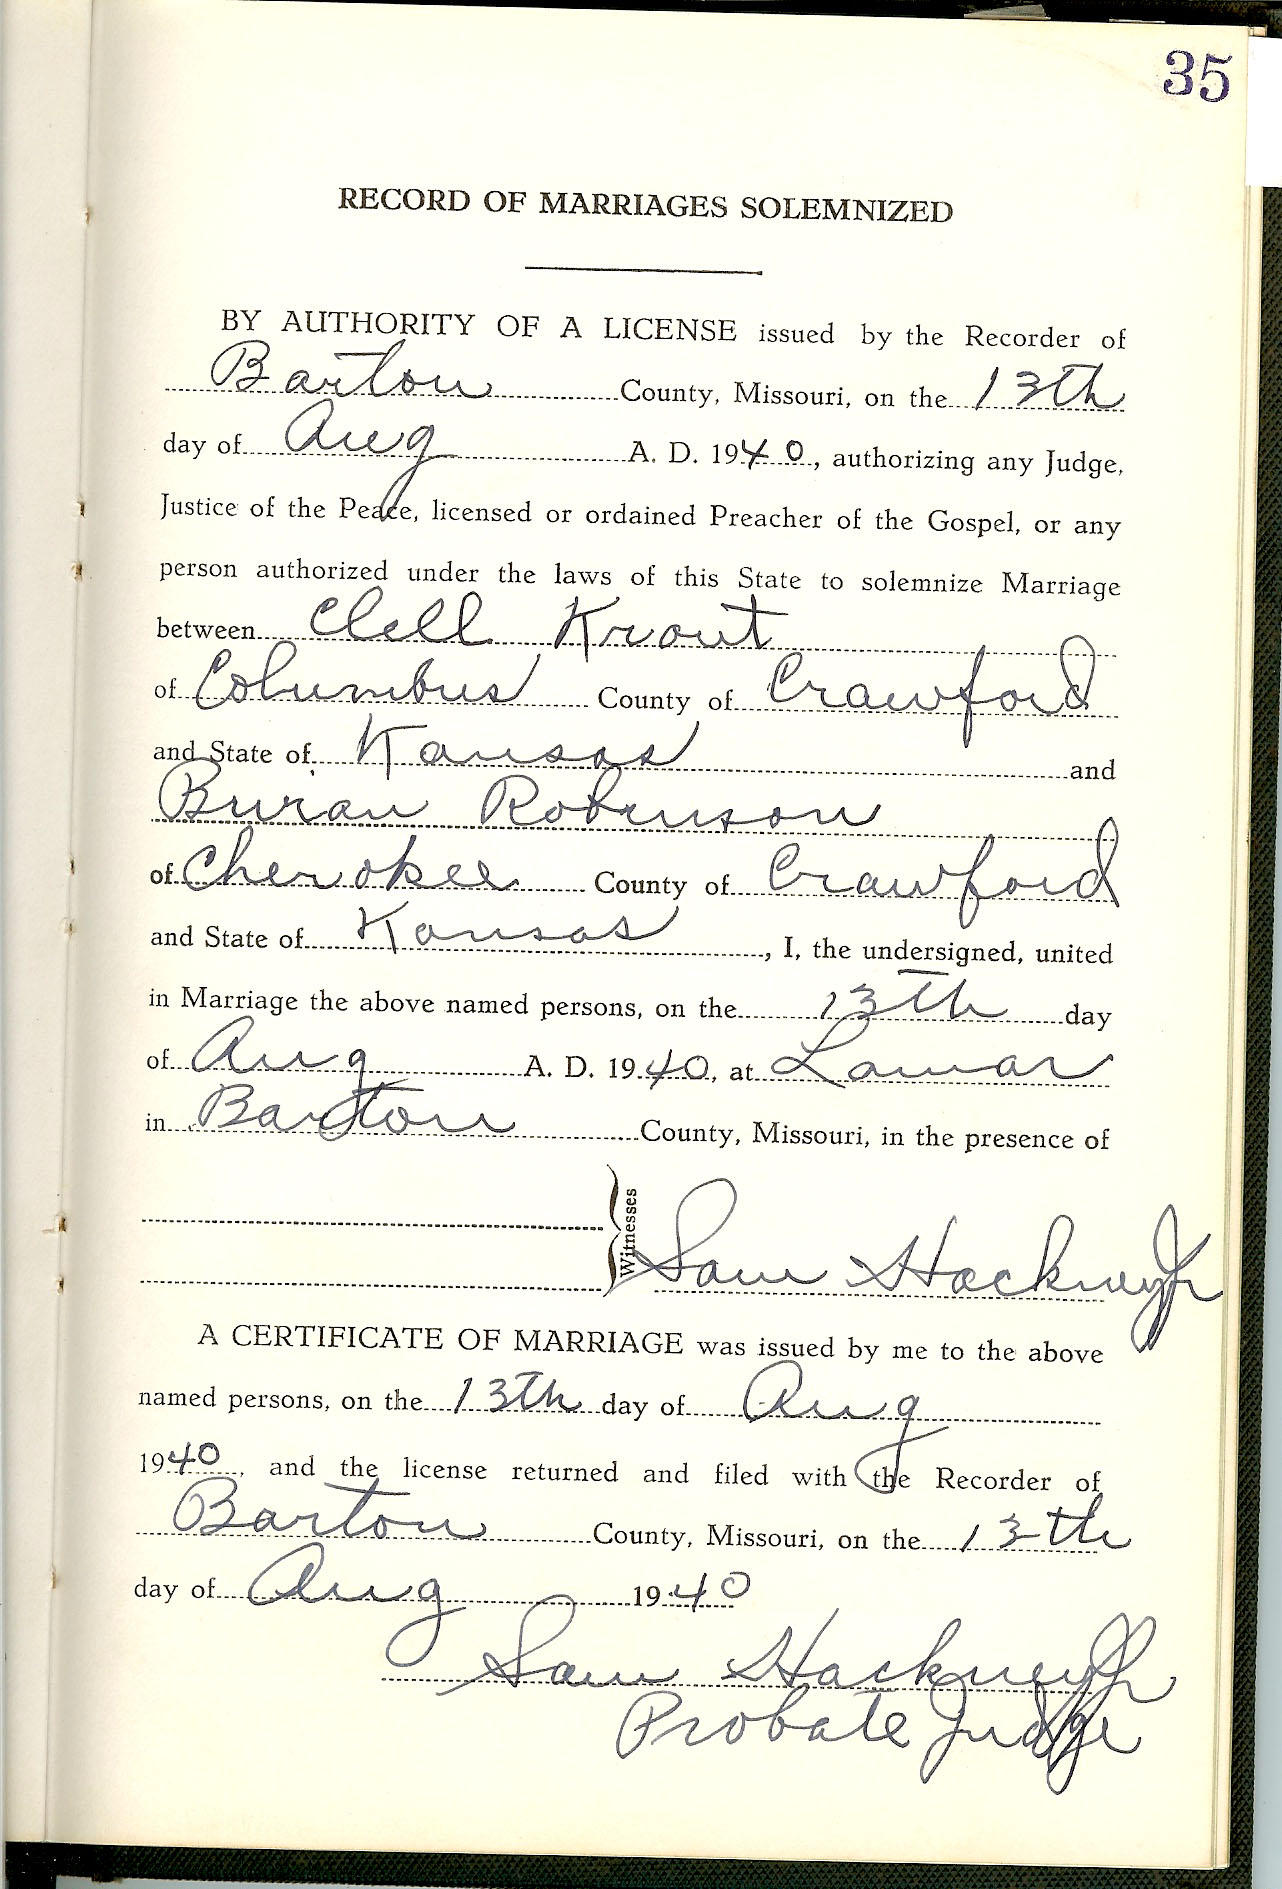 35
RECORD OF MARRIAGES SOLEMNIZED
BY AUTHORITY OF A LICENSE issued by the Recorder of
Barton County, Missouri, on the 13th
day of Aug A. D. 1940, authorizing any Judge,
Justice of the Peace, licensed or ordained Preacher of the Gospel, or any
person authorized under the laws of this State to solemnize Marriage
between Clell Krout
of Columbus County of Crawford
and State of Kansas and
Robinson
of Cherokee County of Crawford
and State of Kansas, I, the undersigned, united
in Marriage the above named persons, on the 13th day
of Aug A. D. 1940, at Lamar
in Barton County, Missouri, in the presence of
Witnesses
Sam Hackney Jr
A CERTIFICATE OF MARRIAGE was issued by me to the above
named persons, on the 13th day of Aug
1940, and the license returned and filed with the Recorder of
Barton County, Missouri, on the 13th
day of Aug 1940
Sam Hackney Jr
Probate Judge